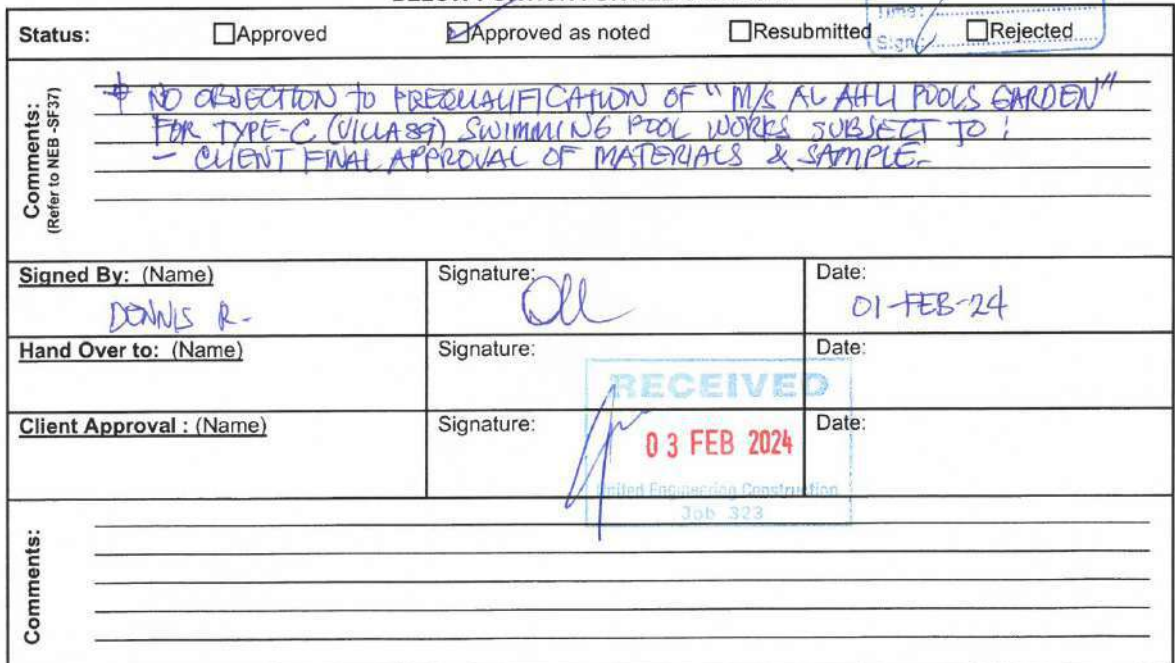 Status: ☐Approved ☑Approved as noted ☐Resubmitted ☐Rejected
Time:
Sign:
Comments:
(Refer to NEB -SF37)
NO OBJECTION TO PREQUALIFICATION OF "M/S AL AHLI POOLS GARDEN"
FOR TYPE-C (VILLA 89) SWIMMING POOL WORKS SUBJECT TO :
- CLIENT FINAL APPROVAL OF MATERIALS & SAMPLE.
Signed By: (Name) Signature: Date:
DENNIS R. 01-FEB-24
Hand Over to: (Name) Signature: Date:
RECEIVED
Client Approval : (Name) Signature: Date:
03 FEB 2024
United Engineering Construction
Job 323
Comments: